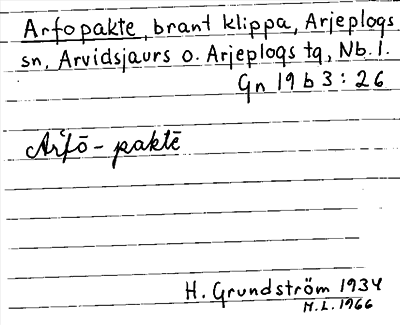 Arfopakte, brant klippa, Arjeplogs
sn, Arvidsjaurs o. Arjeplogs tg, Nb. l.
Gn 19 b 3 : 26
Arfō - paktē
H. Grundström 1934
M.L. 1966